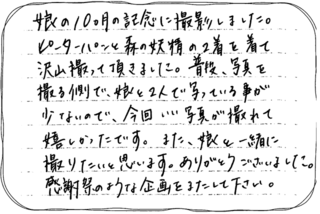 娘の10ヶ月の記念に撮影しました。
ピーターパンと森の妖精の2着を着て
沢山撮って頂きました。普段、写真を
撮る側で、娘と2人で写っている事が
少ないので、今回いい写真が撮れて
嬉しかったです。また、娘と一緒に
撮りたいと思います。ありがとうございました。
感謝祭のような企画をまたして下さい。